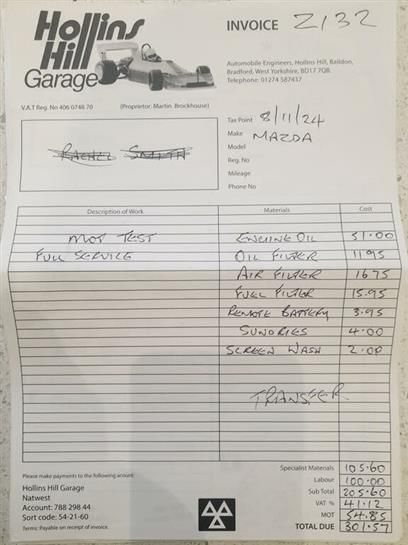 Hollins
Hill
Garage
INVOICE Z132
Automobile Engineers, Hollins Hill, Baildon,
Bradford, West Yorkshire, BD17 7QB.
Telephone: 01274 587437
V.A.T Reg. No 406 0748 70 (Proprietor: Martin. Brockhouse)
Tax Point 8/11/24
Make MAZDA
Model
Reg. No
Mileage
Phone No
RACHEL SMITH
Description of Work Materials Cost
MOT TEST ENGINE OIL 51.00
FULL SERVICE OIL FILTER 11.95
AIR FILTER 16.75
FUEL FILTER 15.95
REMOTE BATTERY 3.95
SUNDRIES 4.00
SCREEN WASH 2.00
TRANSFER
Specialist Materials 105.60
Labour 100.00
Sub Total 205.60
VAT % 41.12
MOT 54.85
TOTAL DUE 301.57
Please make payments to the following acount:
Hollins Hill Garage
Natwest
Account: 788 298 44
Sort code: 54-21-60
Terms: Payable on receipt of invoice.